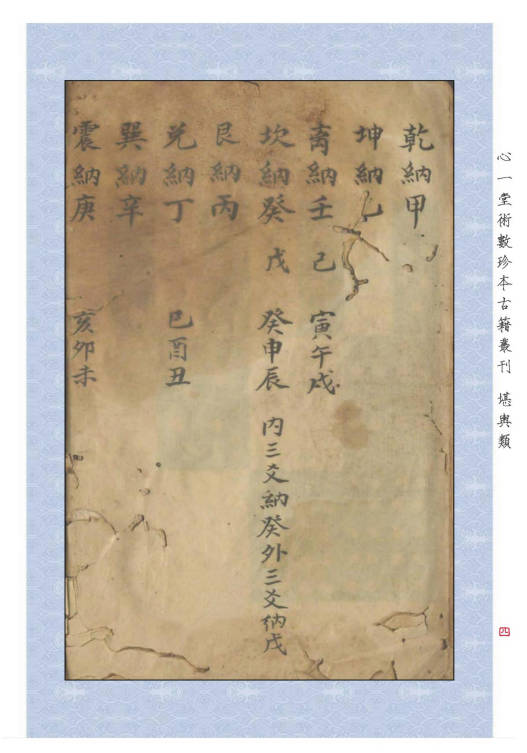 心一堂術數珍本古籍叢刊 堪輿類
乾納甲
坤納乙
离納壬 己 寅午戌
坎納癸 戊 癸申辰 内三爻納癸外三爻納戊
艮納丙
兑納丁 巳酉丑
巽納辛
震納庚 亥卯未
四